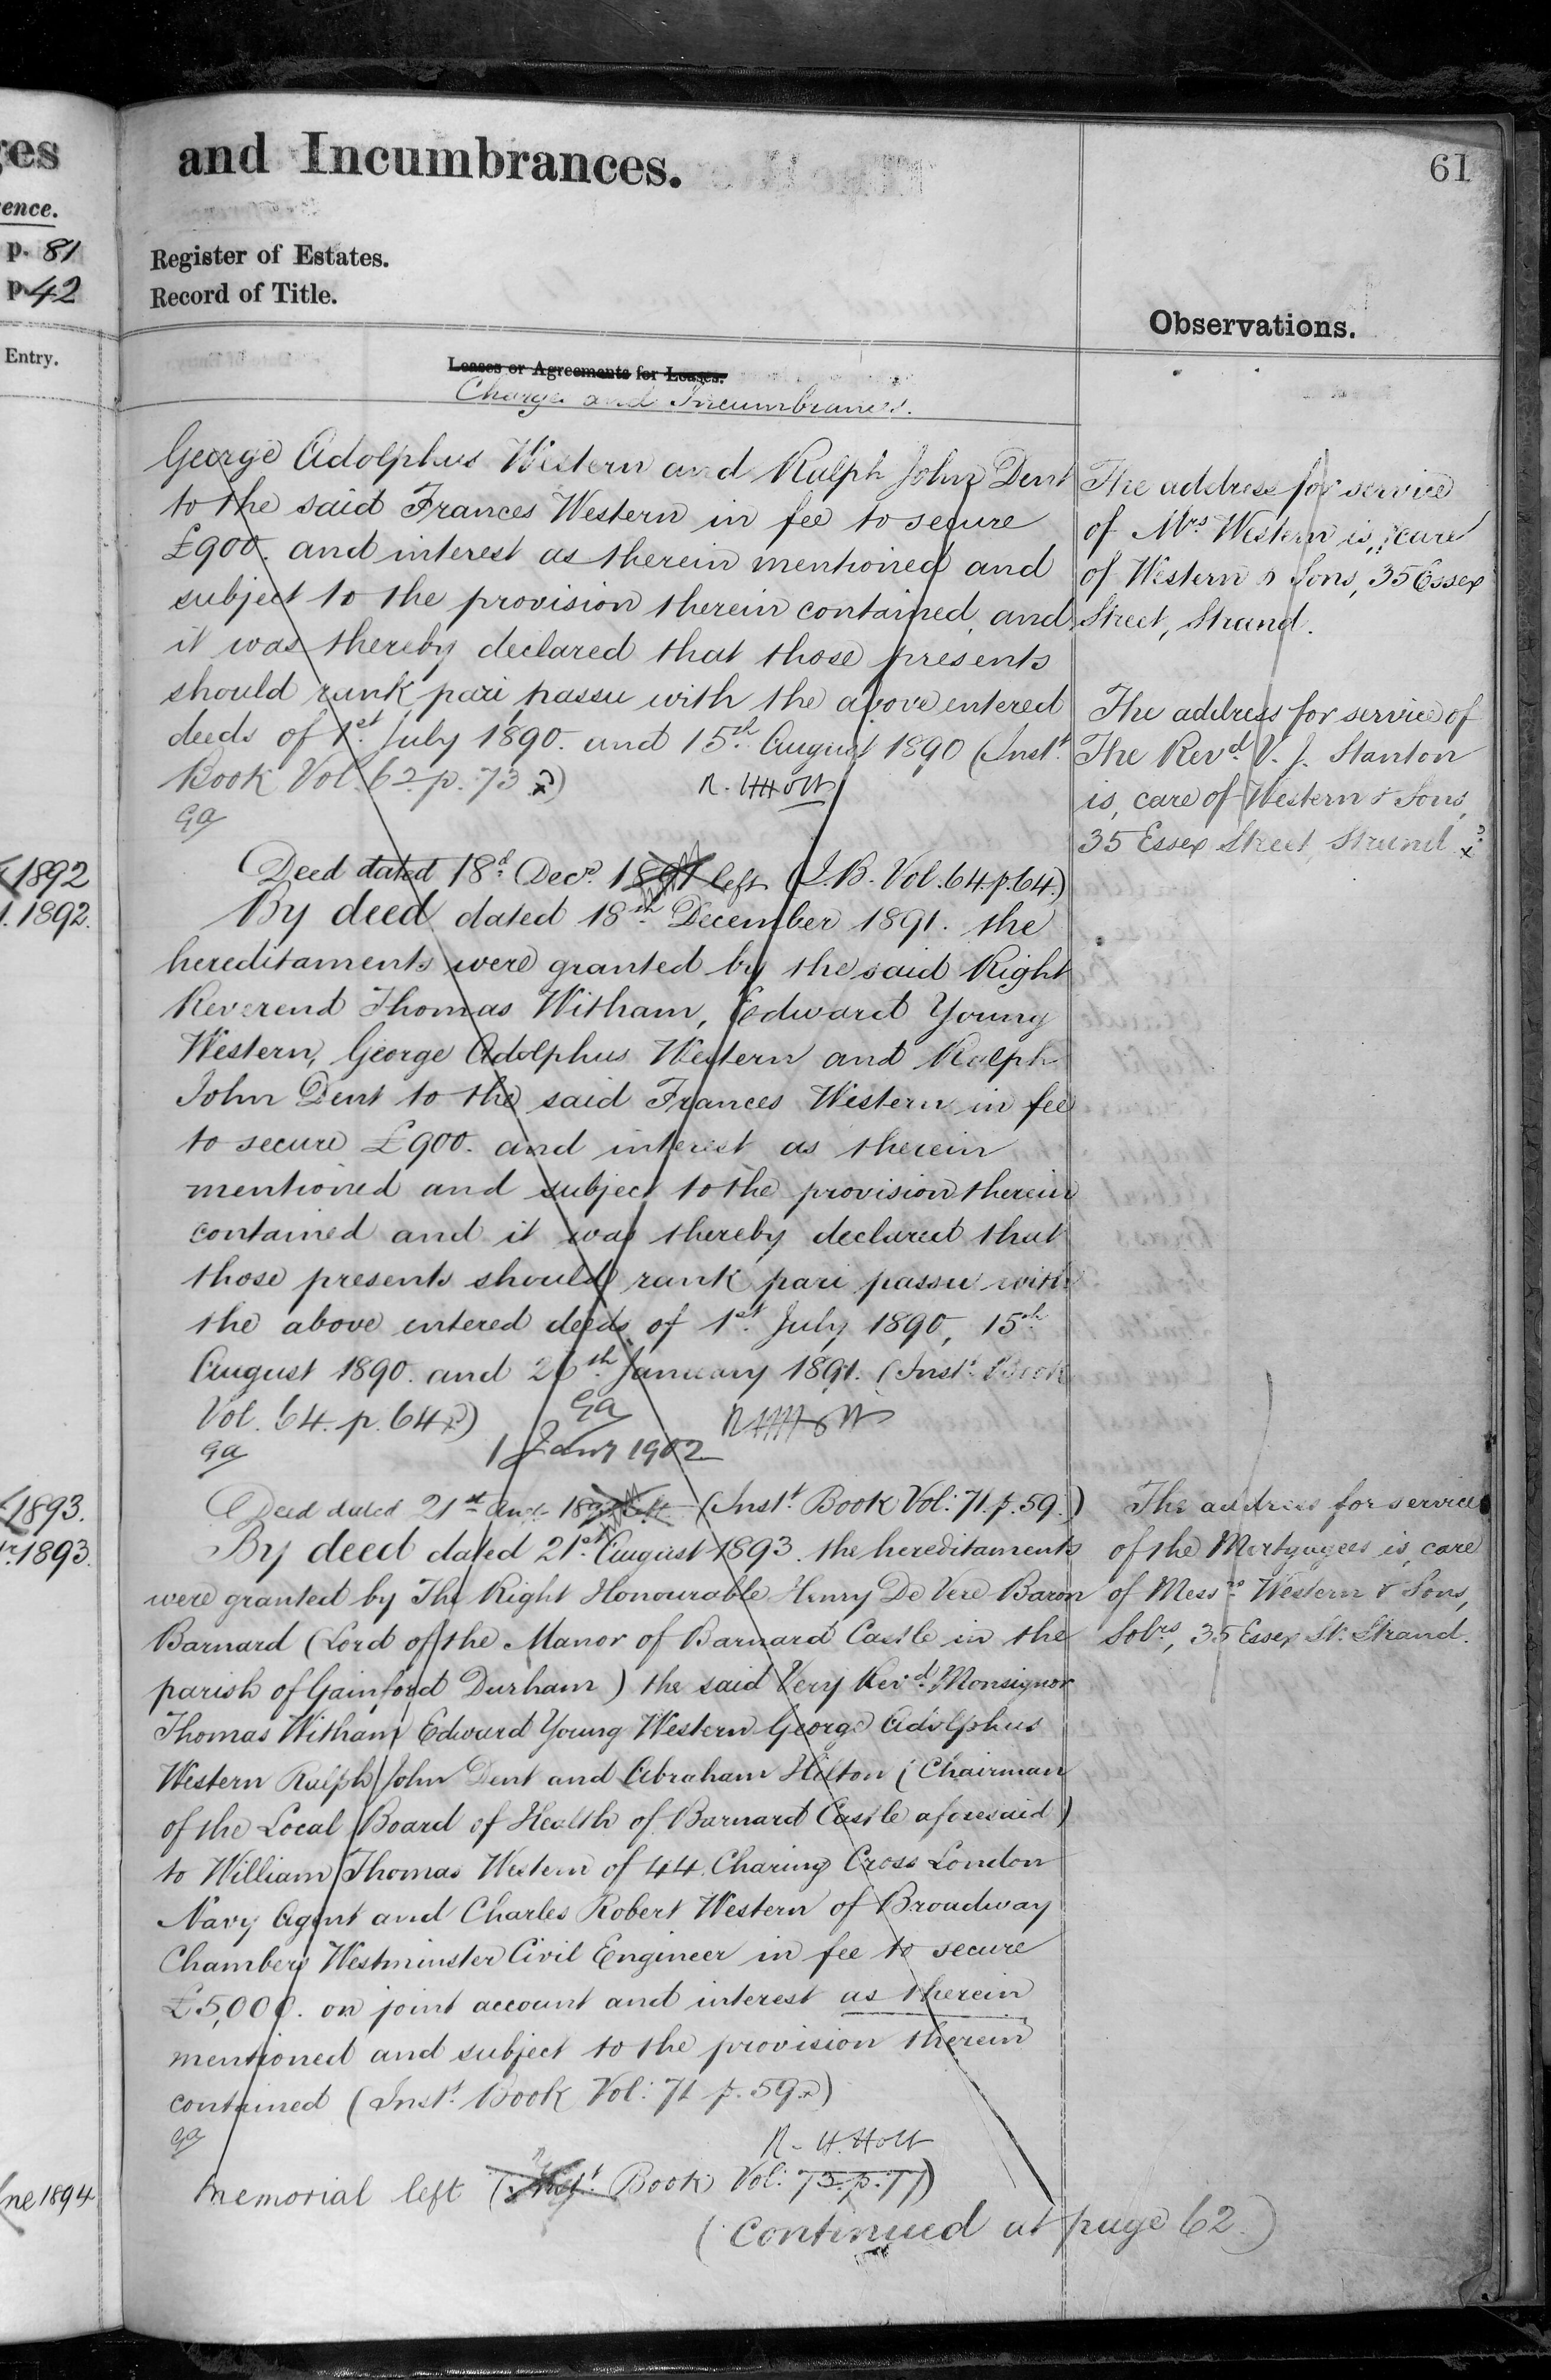 ges
ence.
p. 81
p. 42
Entry.
1892
1892.
1893.
1893.
ne 1894
and Incumbrances.
61
Register of Estates.
Record of Title.
Observations.
Leases or Agreements for Leases.
Charges and Incumbrances.
George Adolphus Western and Ralph John Dent
to the said Frances Western in fee to secure
£900. and interest as therein mentioned and
subject to the provision therein contained and
it was thereby declared that those presents
should rank pari passu with the above entered
deeds of 1st July 1890. and 15th August 1890 (Inst.t
Book Vol. 62. p. 73)
Ga
R. H. Holt
Deed dated 18th Decr. 1891 left (I.B. Vol. 64. p. 64.)
By deed dated 18th December 1891. the
hereditaments were granted by the said Right
Reverend Thomas Witham, Edward Young
Western, George Adolphus Western and Ralph
John Dent to the said Frances Western in fee
to secure £900. and interest as therein
mentioned and subject to the provision therein
contained and it was thereby declared that
those presents should rank pari passu with
the above entered deeds of 1st July 1890, 15th
August 1890. and 26th January 1891. (Inst.t Book
Vol. 64. p. 64)
Ga
Ga
1 Jany 1902
Deed dated 21st Aug. 1893 left (Inst.t Book Vol: 71. p. 59.)
By deed dated 21st August 1893. the hereditaments
were granted by The Right Honourable Henry De Vere Baron
Barnard (Lord of the Manor of Barnard Castle in the
parish of Gainford Durham) the said Very Revd. Monsignor
Thomas Witham Edward Young Western George Adolphus
Western Ralph John Dent and Abraham Hilton (Chairman
of the Local Board of Health of Barnard Castle aforesaid)
to William Thomas Western of 44. Charing Cross London
Navy Agent and Charles Robert Western of Broadway
Chambers Westminster Civil Engineer in fee to secure
£5,000. on joint account and interest as therein
mentioned and subject to the provision therein
contained (Inst.t Book Vol: 71 p. 59)
Ga
R. H. Holt
Memorial left (Inst.t Book Vol: 73. p. 77)
(Continued at page 62.)
The address for service
of Mrs Western is, care
of Western & Sons, 35 Essex
Street, Strand.
The address for service of
The Revd V. J. Stanton
is, care of Western & Sons,
35 Essex Street, Strand
The address for service
of the Mortgagees is, care
of Messrs Western & Sons,
Solrs, 35 Essex St. Strand.